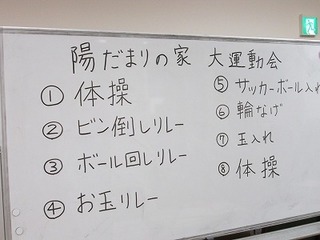 陽だまりの家 大運動会
① 体操
② ビン倒しリレー
③ ボール回しリレー
④ お玉リレー
⑤ サッカーボール入れ
⑥ 輪なげ
⑦ 玉入れ
⑧ 体操